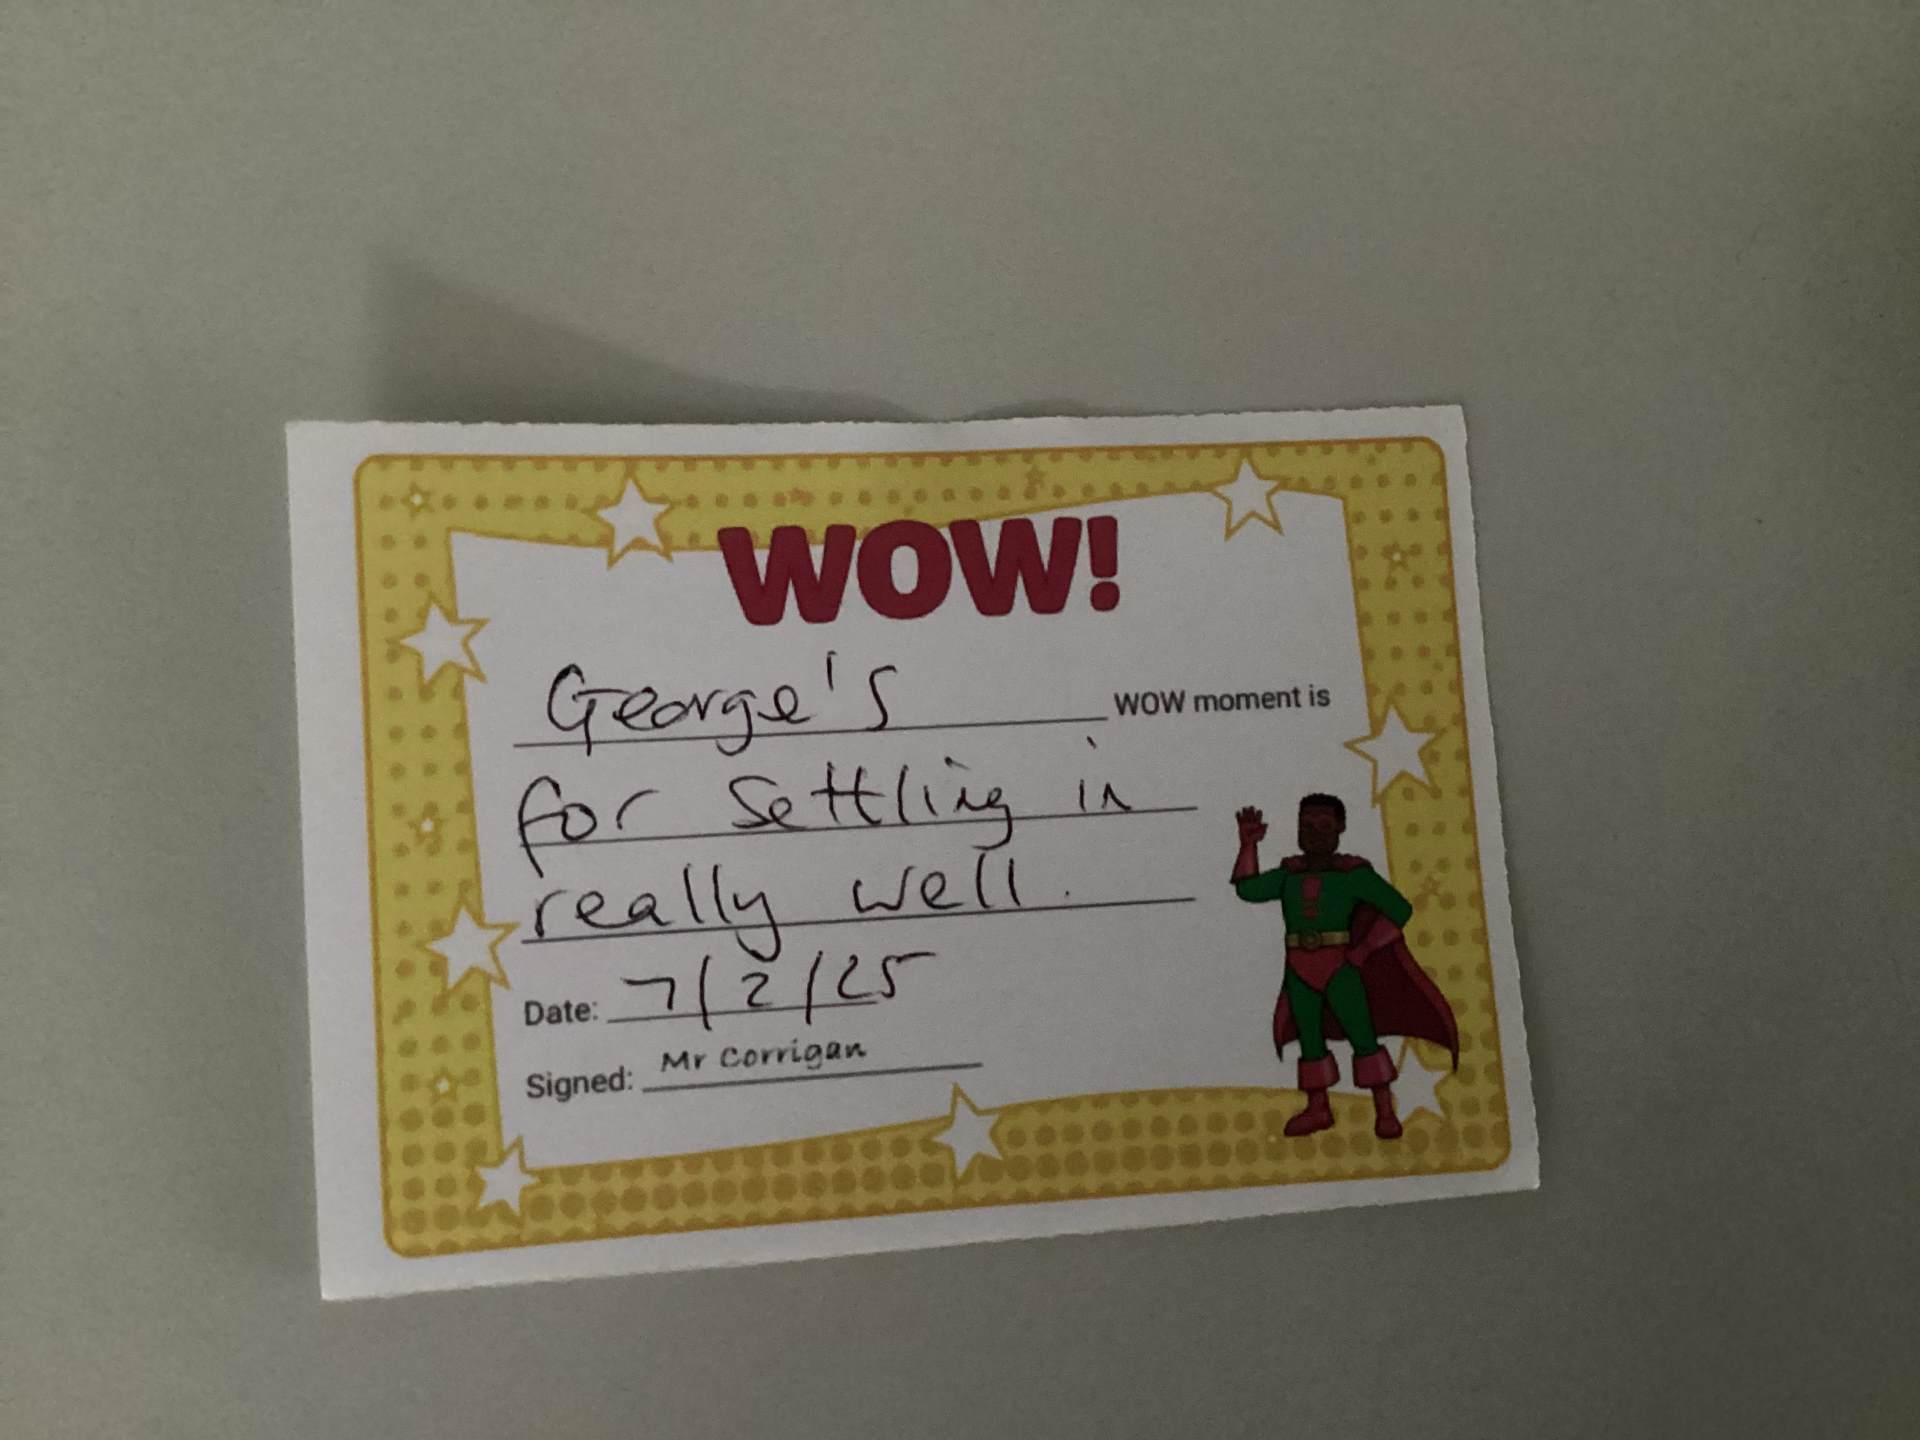 WOW!
George's WOW moment is
for settling in
really well.
Date: 7/2/25
Signed: Mr Corrigan